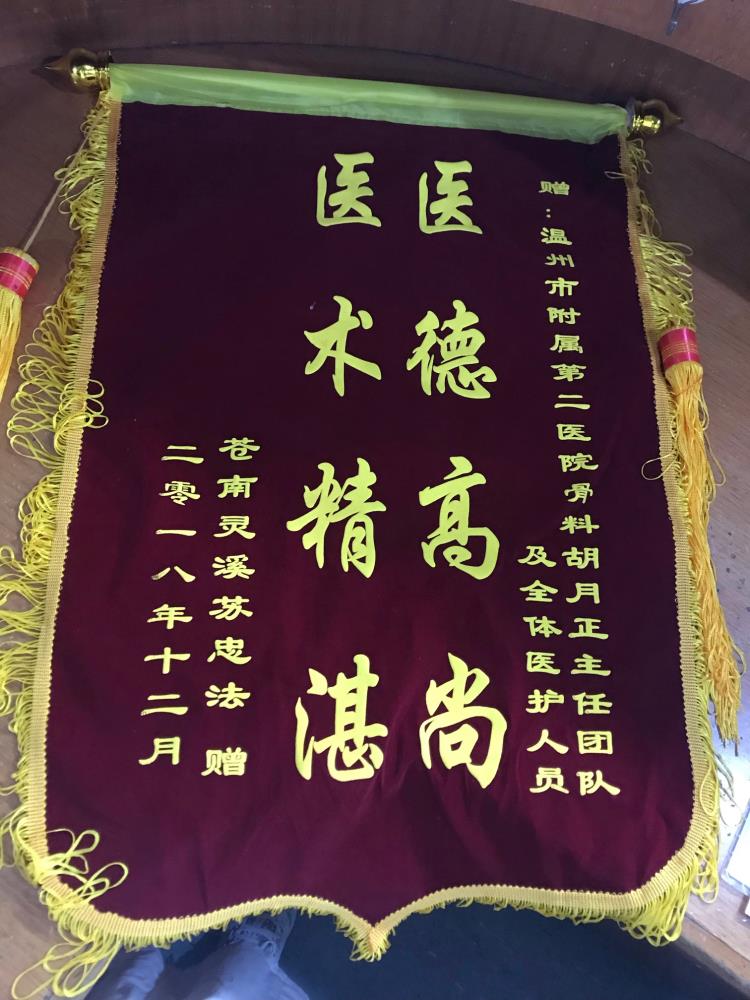 赠：温州市附属第二医院骨料胡月正主任团队
及全体医护人员
医德高尚
医术精湛
苍南灵溪苏忠法 赠
二零一八年十二月